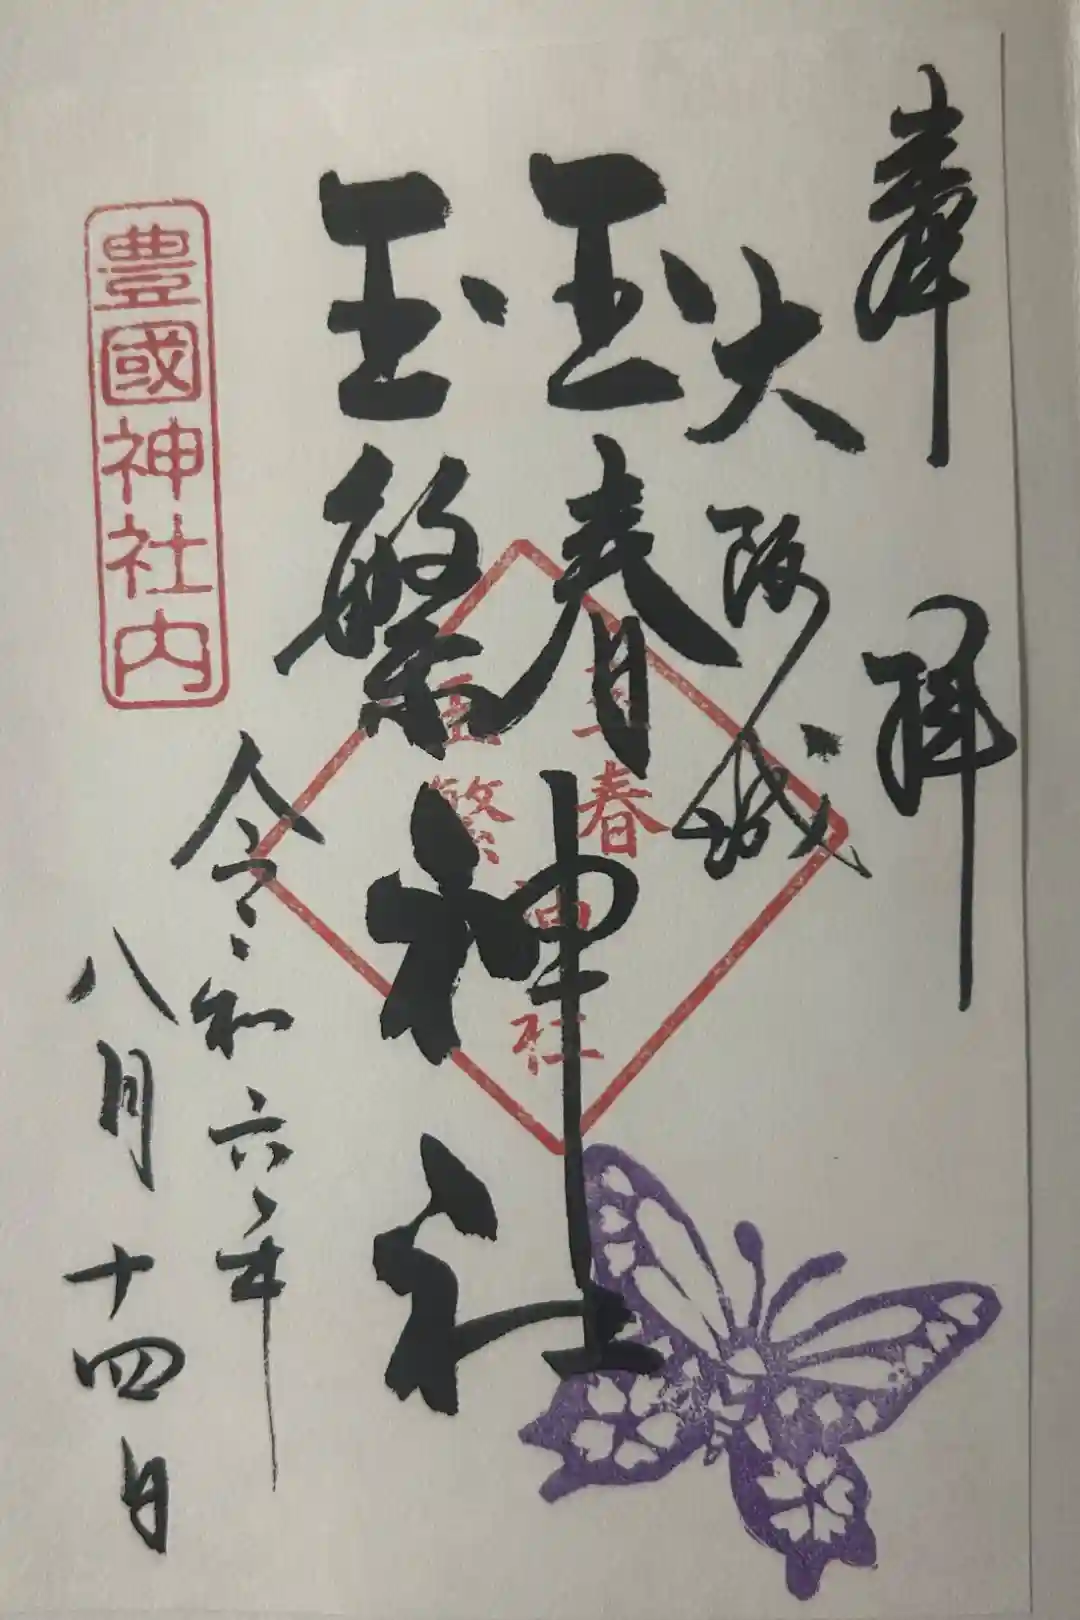 奉拝
大阪城
玉春
玉繁
神社
令和六年
八月十四日
豊國神社内
玉春
玉繁
神社